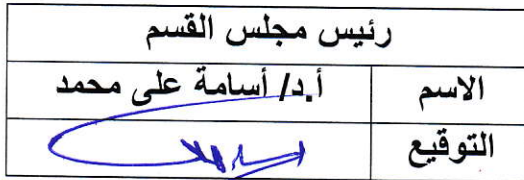 رئيس مجلس القسم
الاسم أ.د/ أسامة على محمد
التوقيع